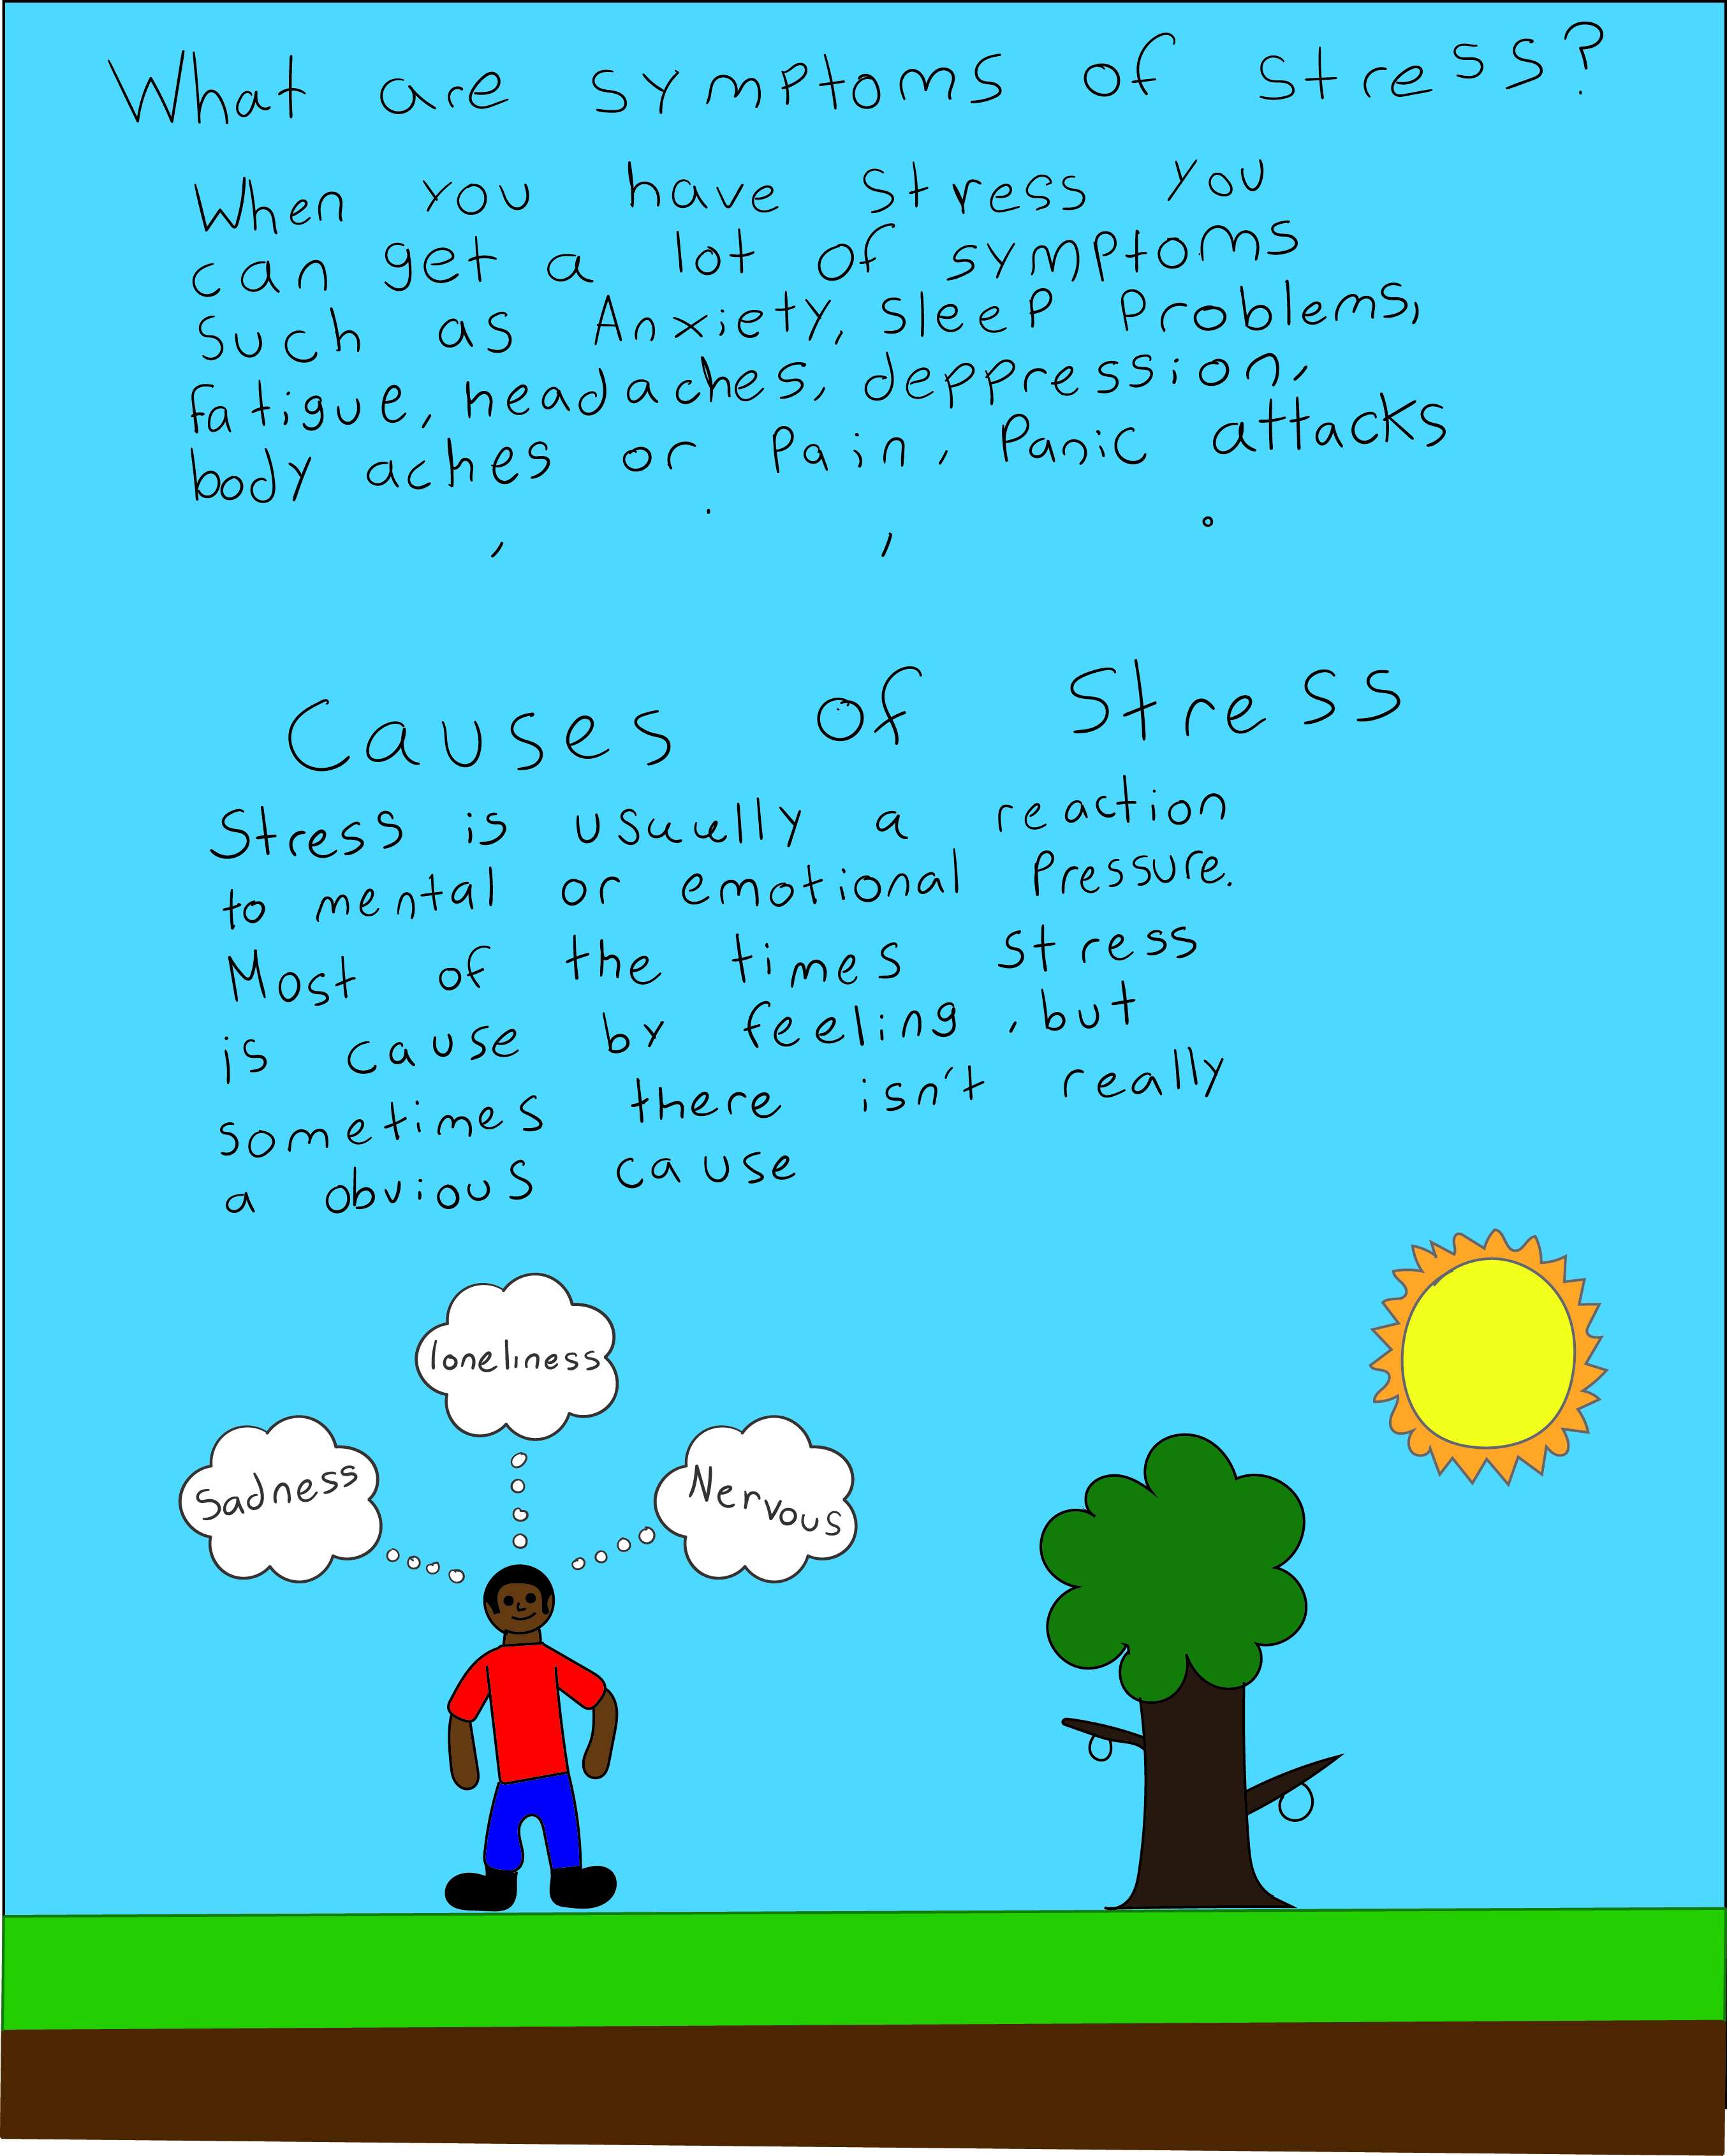 What are symptoms of stress?
When you have stress you
can get a lot of symptoms
such as Anxiety, sleep problems,
fatigue, headaches, deppression,
body aches or pain, panic attacks
Causes of Stress
Stress is usually a reaction
to mental or emotional pressure.
Most of the times stress
is cause by feeling, but
sometimes there isn't really
a obvious cause
loneliness
Sadness
Nervous